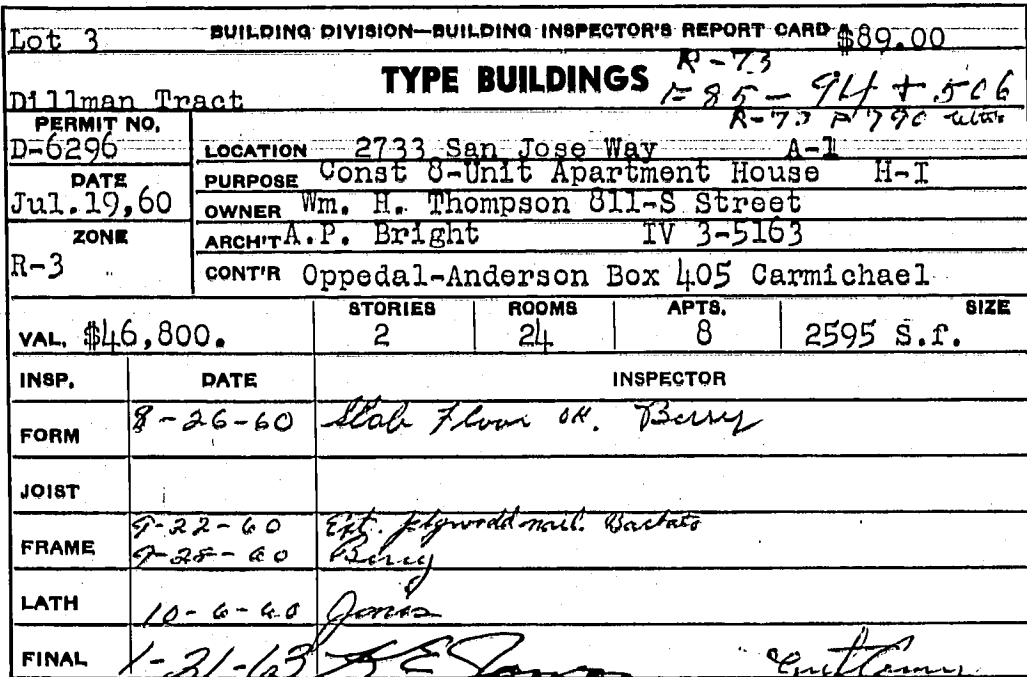 Lot 3 BUILDING DIVISION—BUILDING INSPECTOR'S REPORT CARD $89.00
TYPE BUILDINGS R-73
Dillman Tract F-85- 94 + 506
R-73 P 790
PERMIT NO.
D-6296
LOCATION 2733 San Jose Way A-1
PURPOSE Const 8-Unit Apartment House H-I
DATE
Jul.19,60
OWNER Wm. H. Thompson 811-S Street
ZONE
R-3
ARCH'T A.P. Bright IV 3-5163
CONT'R Oppedal-Anderson Box 405 Carmichael
VAL. $46,800. STORIES 2 ROOMS 24 APTS. 8 SIZE 2595 S.f.
INSP. DATE INSPECTOR
FORM 8-26-60 Slab Floor OK. Berry
JOIST
FRAME 9-22-60 Ext. plywood nail.
9-28-60 Berry
LATH 10-6-60 Jones
FINAL 1-31-63